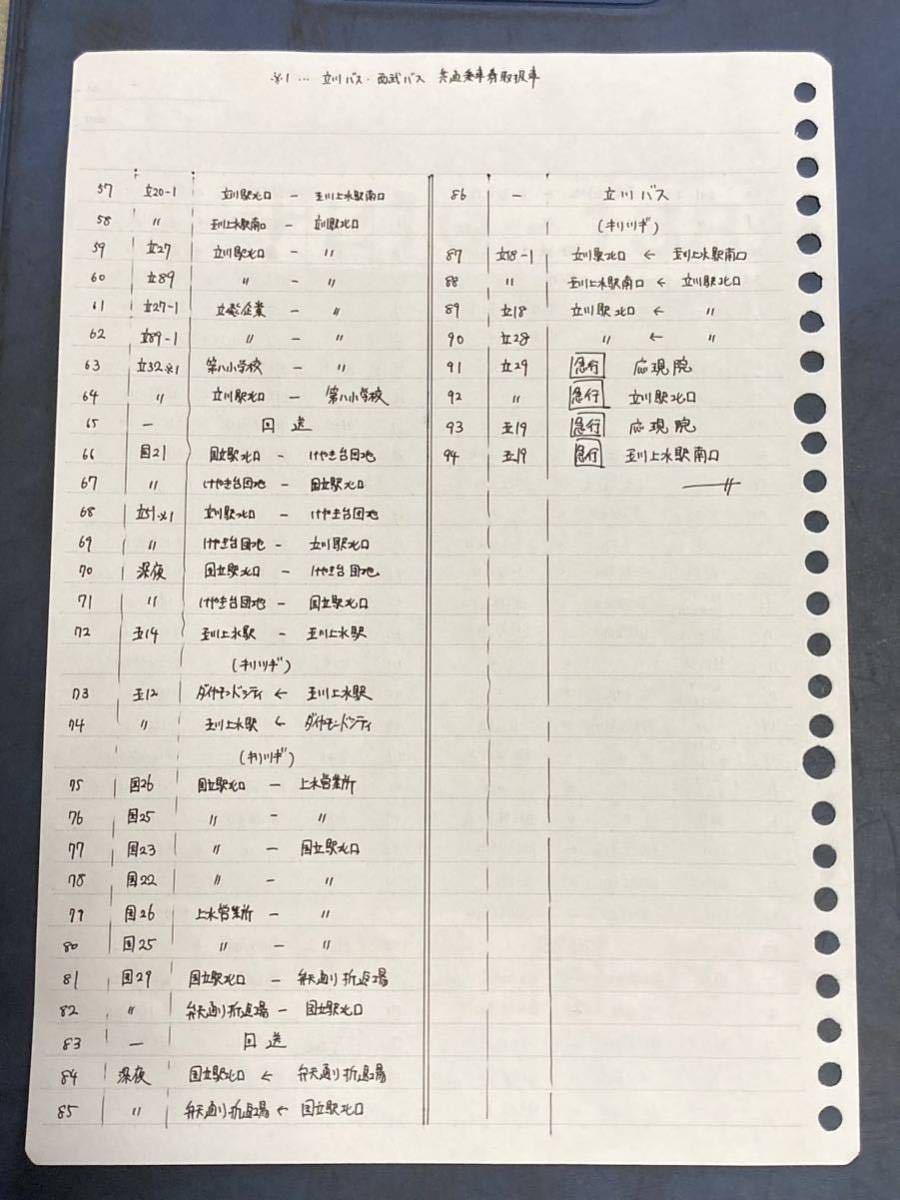 ※1… 立川バス・西武バス 共通乗車券取扱車
57 立20-1 立川駅北口 — 玉川上水駅南口
58 〃 玉川上水駅南口 — 立川駅北口
59 立27 立川駅北口 — 〃
60 立89 〃 — 〃
61 立27-1 立飛企業 — 〃
62 立89-1 〃 — 〃
63 立32※1 第八小学校 — 〃
64 〃 立川駅北口 — 第八小学校
65 — 回送
66 国21 国立駅北口 — けやき台団地
67 〃 けやき台団地 — 国立駅北口
68 立51※1 立川駅北口 — けやき台団地
69 〃 けやき台団地 — 立川駅北口
70 深夜 国立駅北口 — けやき台団地
71 〃 けやき台団地 — 国立駅北口
72 玉14 玉川上水駅 — 玉川上水駅
(キリツギ)
73 玉12 ダイヤモンドシティ ← 玉川上水駅
74 〃 玉川上水駅 ← ダイヤモンドシティ
(キリツギ)
75 国26 国立駅北口 — 上水営業所
76 国25 〃 — 〃
77 国23 〃 — 国立駅北口
78 国22 〃 — 〃
79 国26 上水営業所 — 〃
80 国25 〃 — 〃
81 国29 国立駅北口 — 弁天通り折返場
82 〃 弁天通り折返場 — 国立駅北口
83 — 回送
84 深夜 国立駅北口 ← 弁天通り折返場
85 〃 弁天通り折返場 ← 国立駅北口
86 — 立川バス
(キリツギ)
87 立18-1 立川駅北口 ← 玉川上水駅南口
88 〃 玉川上水駅南口 ← 立川駅北口
89 立18 立川駅北口 ← 〃
90 立28 〃 ← 〃
91 立29 急行 応現院
92 〃 急行 立川駅北口
93 玉19 急行 応現院
94 玉19 急行 玉川上水駅南口